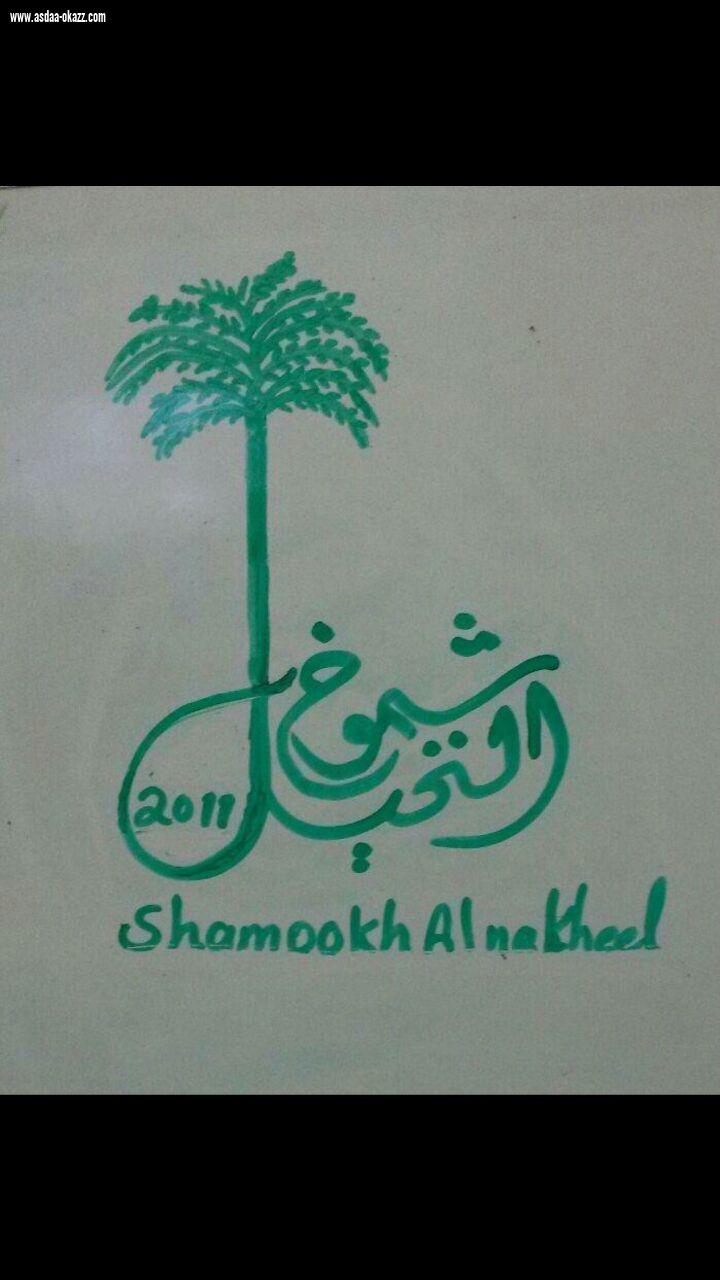 www.asdaa-okazz.com
شموخ
النخيل
2011
Shamookh Al nakheel